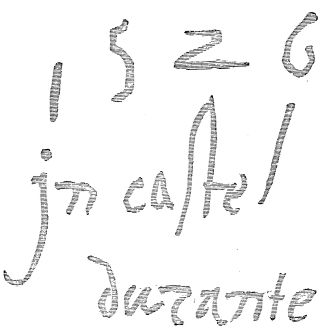 1526
jn castel
durante